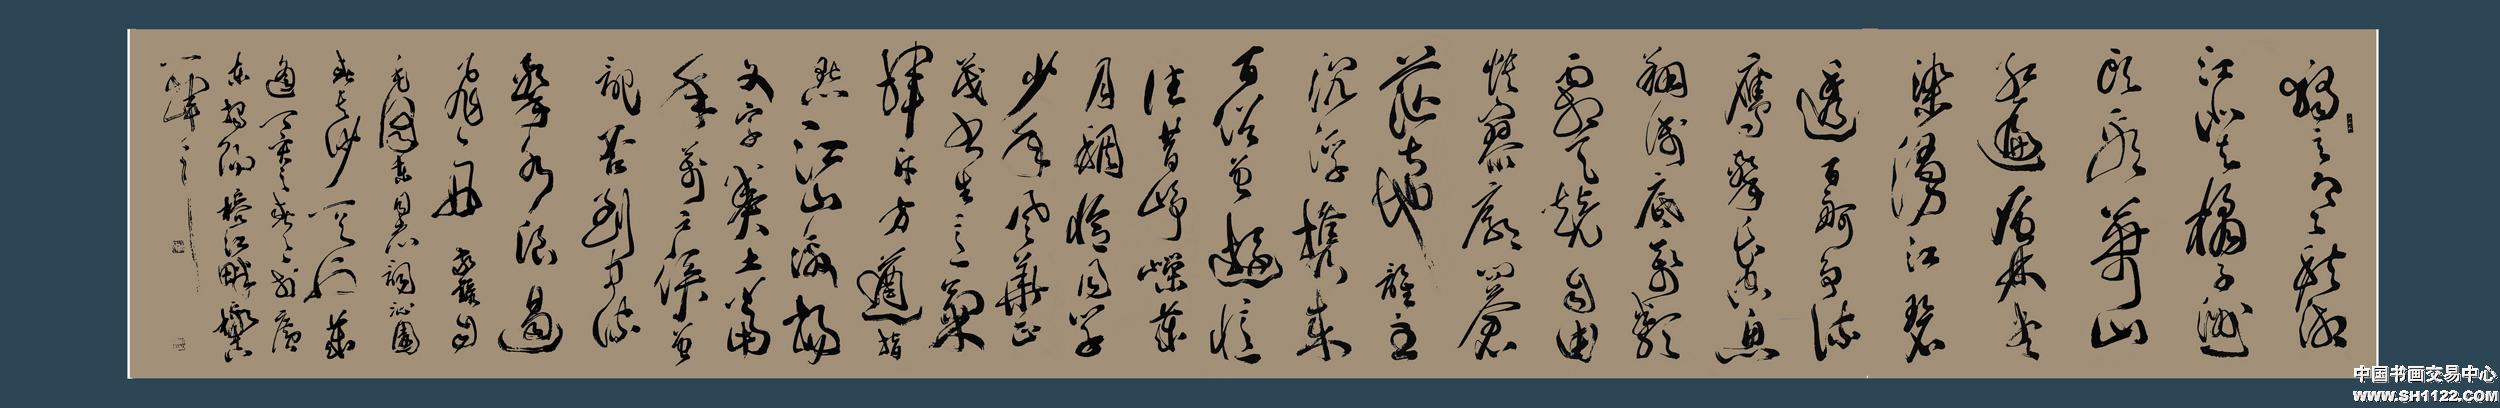 独立寒秋湘
江北去橘子洲
头看万山
红遍层林尽
染漫江碧
透百舸争流
鹰击长空鱼
翔浅底万类
霜天竞自由
怅寥廓问苍
茫大地谁主
沉浮携来
百侣曾游忆
往昔峥嵘岁
月稠恰同学
少年风华正
茂书生意气
挥斥方遒指
点江山激扬
文字粪土当
年万户侯曾
记否到中流
击水浪遏
飞舟
同志词沁园
春长沙一首
中国书画交易中心
WWW.SH1122.COM